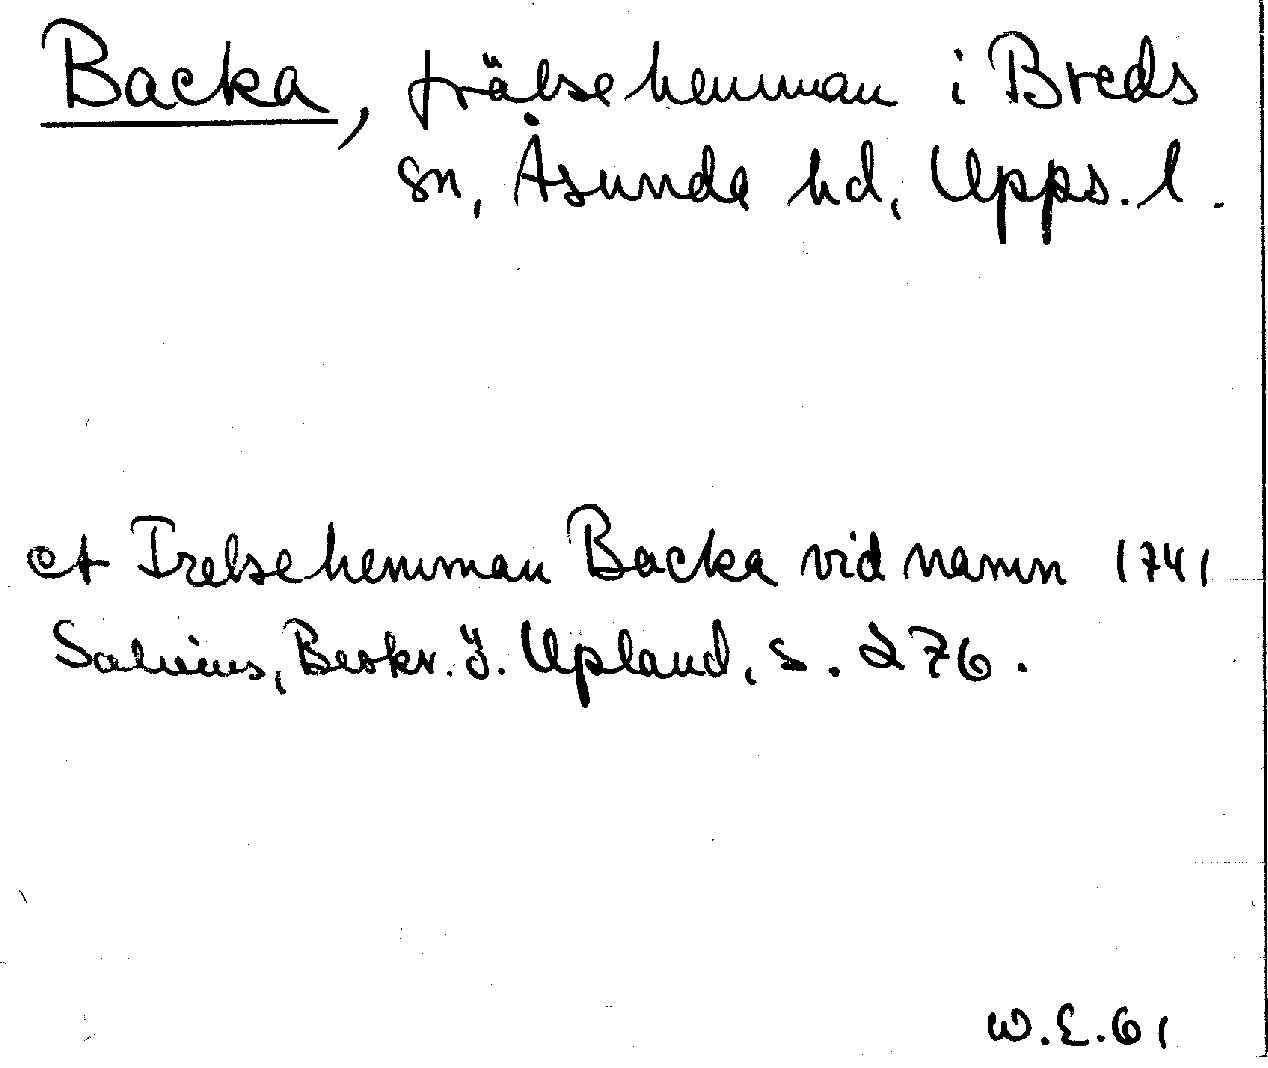 Backa, frälsehemman i Breds
sn, Åsunda hd, Upps. l.
et Frelsehemman Backa vid namn 1741
Salvius, Beskr. ö. Upland, s. 276.
W.E.61